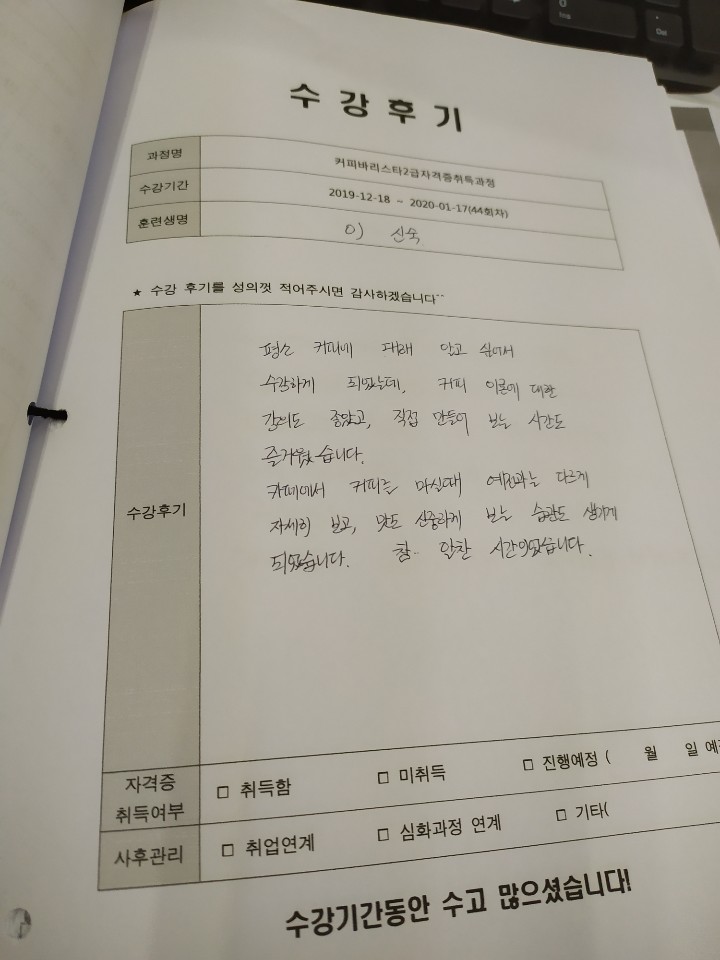 수강후기
과정명 커피바리스타2급자격증취득과정
수강기간 2019-12-18 ~ 2020-01-17(44회차)
훈련생명 이 신숙
★ 수강 후기를 성의껏 적어주시면 감사하겠습니다^^
수강후기
평소 커피에 대해 알고 싶어서
수강하게 되었는데, 커피 이론에 대한
강의도 좋았고, 직접 만들어 보는 시간도
즐거웠습니다.
카페에서 커피를 마실때 예전과는 다르게
자세히 보고, 맛도 신중하게 보는 습관도 생기게
되었습니다. 참.. 알찬 시간이었습니다.
자격증 취득여부 □ 취득함 □ 미취득 □ 진행예정 ( 월 일 예
사후관리 □ 취업연계 □ 심화과정 연계 □ 기타(
수강기간동안 수고 많으셨습니다!
Ins
Del